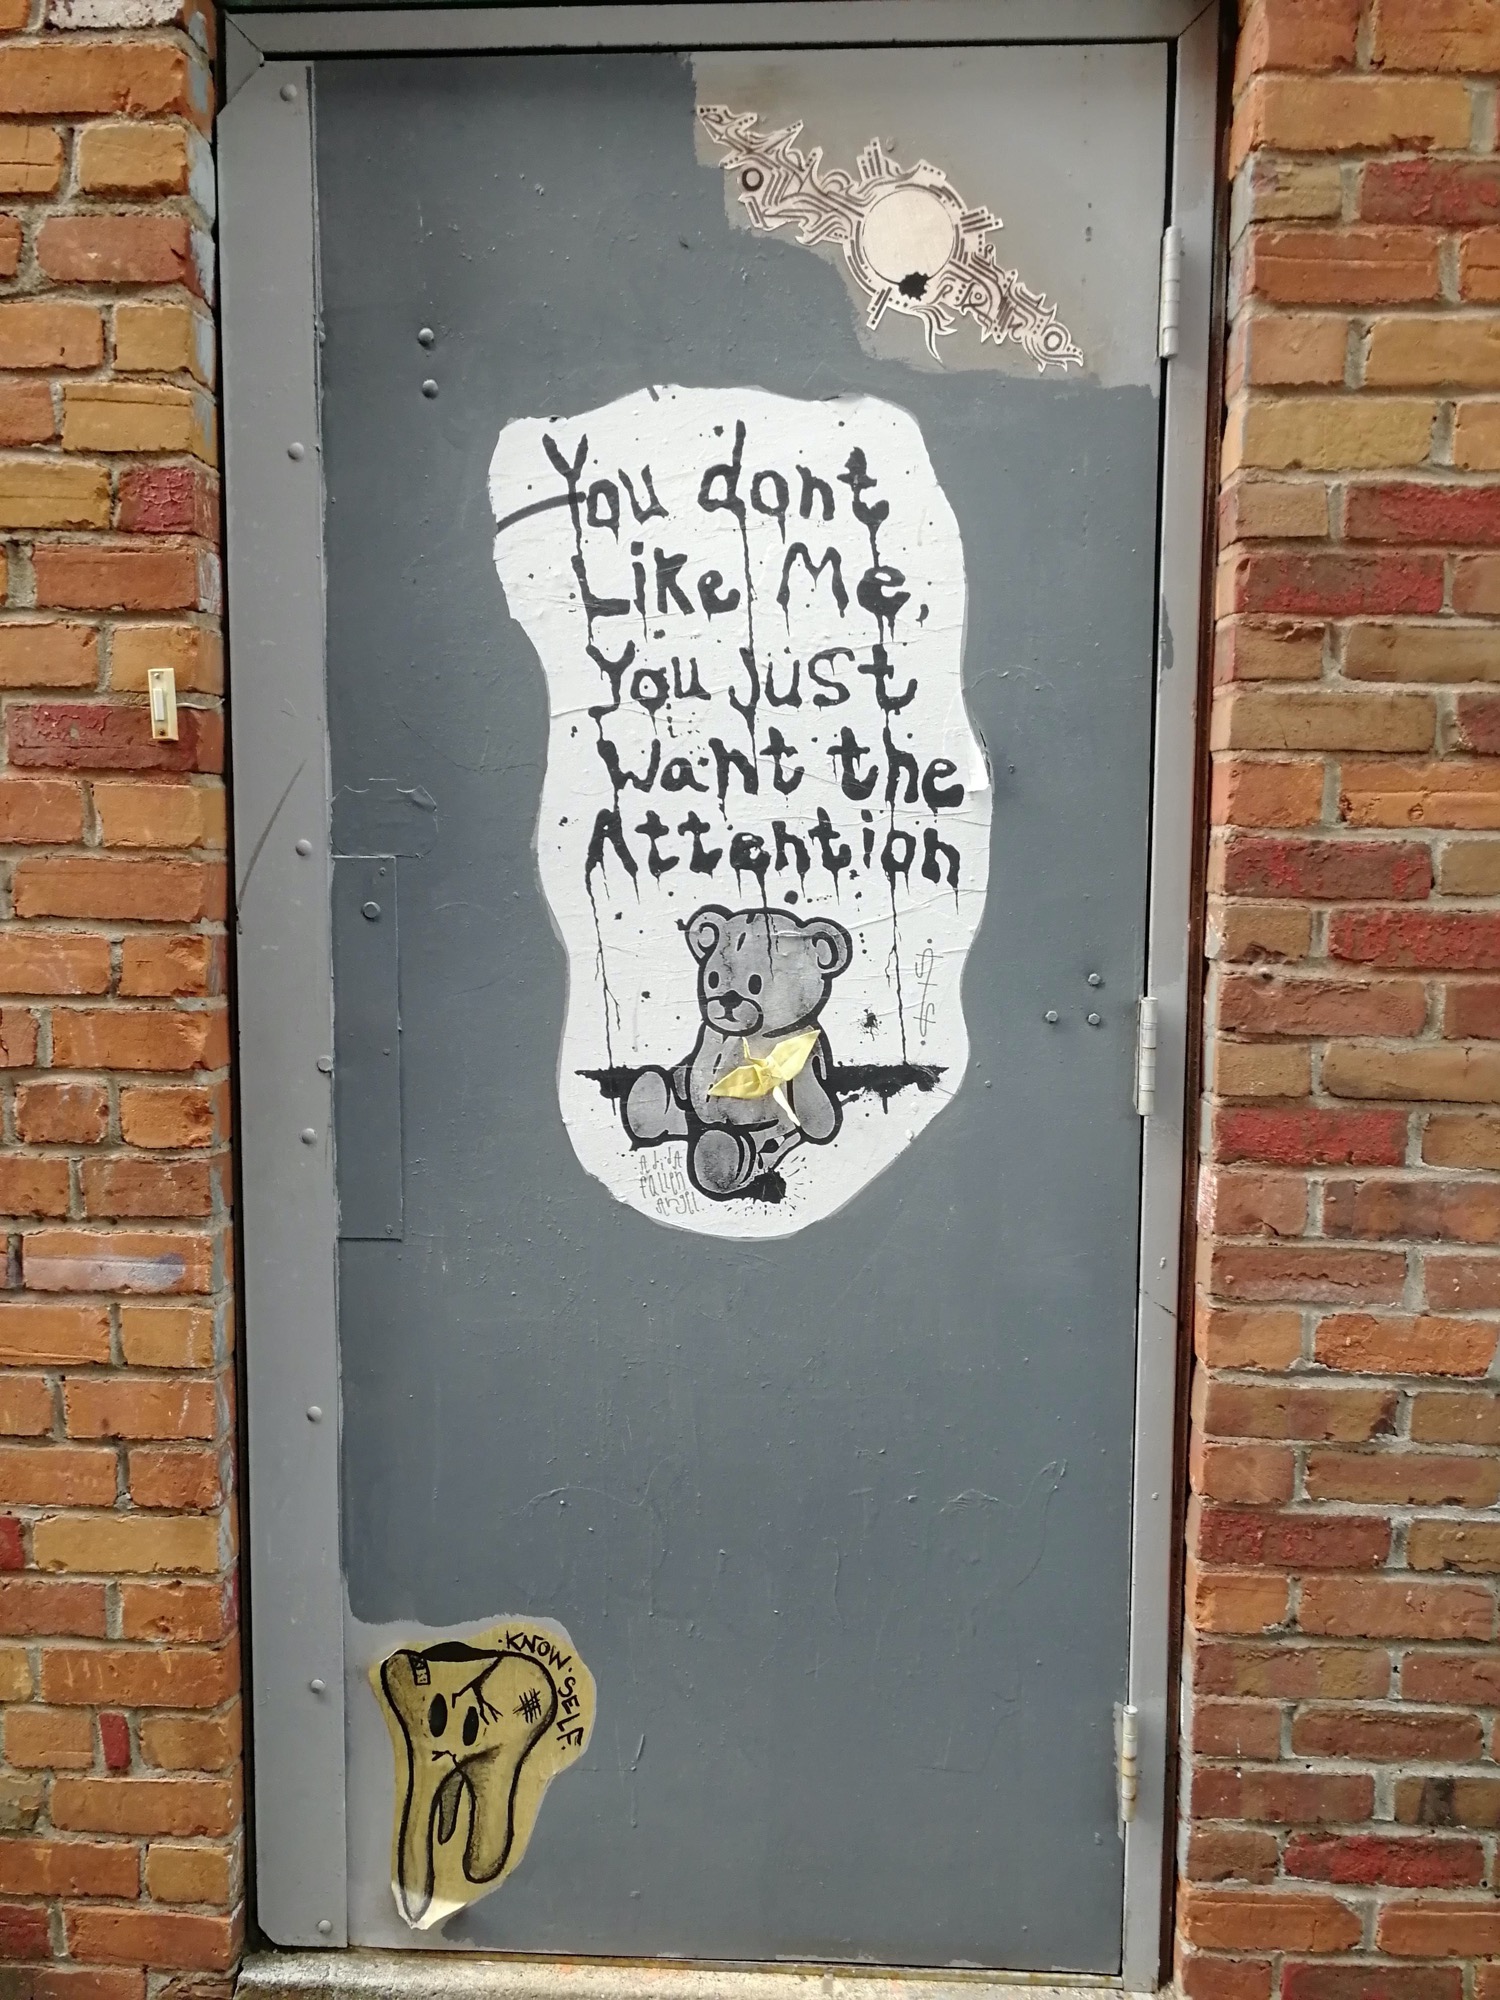 You dont
Like Me,
You just
Want the
Attention
fallen
Angel
·KNOW·SELF·